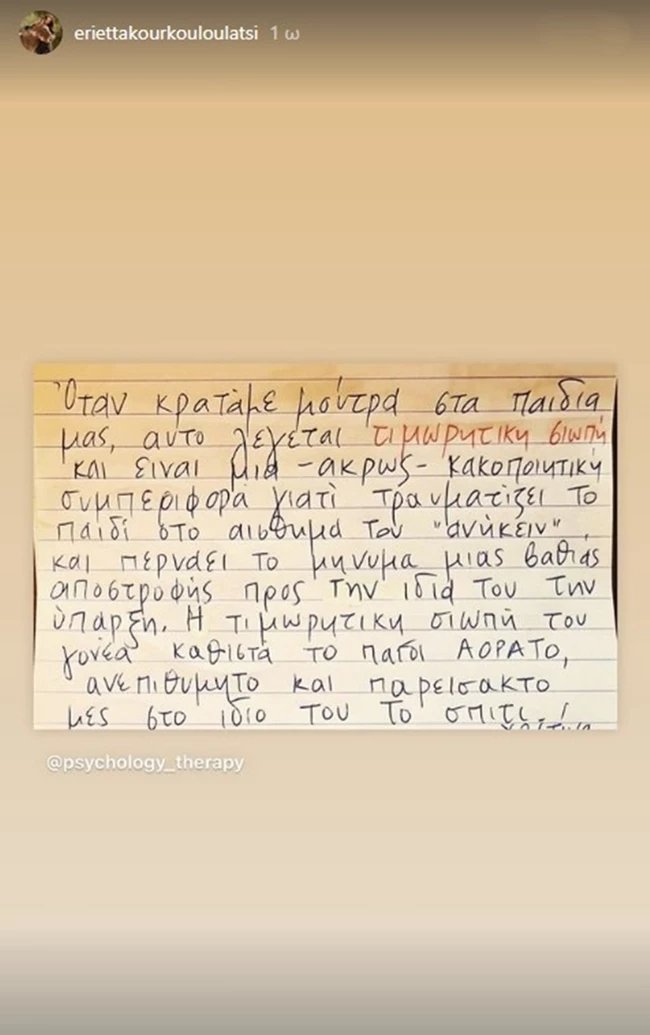 eriettakourkouloulatsi 1 ω
Όταν κρατάμε μούτρα στα παιδια
μας, αυτο λέγεται τιμωρητικη σιωπή
και ειναι μια -ακρως- κακοποιητική
συμπεριφορα γιατί τραυματίζει το
παιδί στο αισθημα του "ανήκειν",
και περνάει το μηνυμα μιας βαθιας
αποστροφής προς την ιδια του την
ύπαρξη. Η τιμωρητικη σιωπή του
γονέα καθιστά το παιδι ΑΟΡΑΤΟ,
ανεπιθυμητο και παρεισακτο
μες στο ιδιο του το σπιτι.!
@psychology_therapy